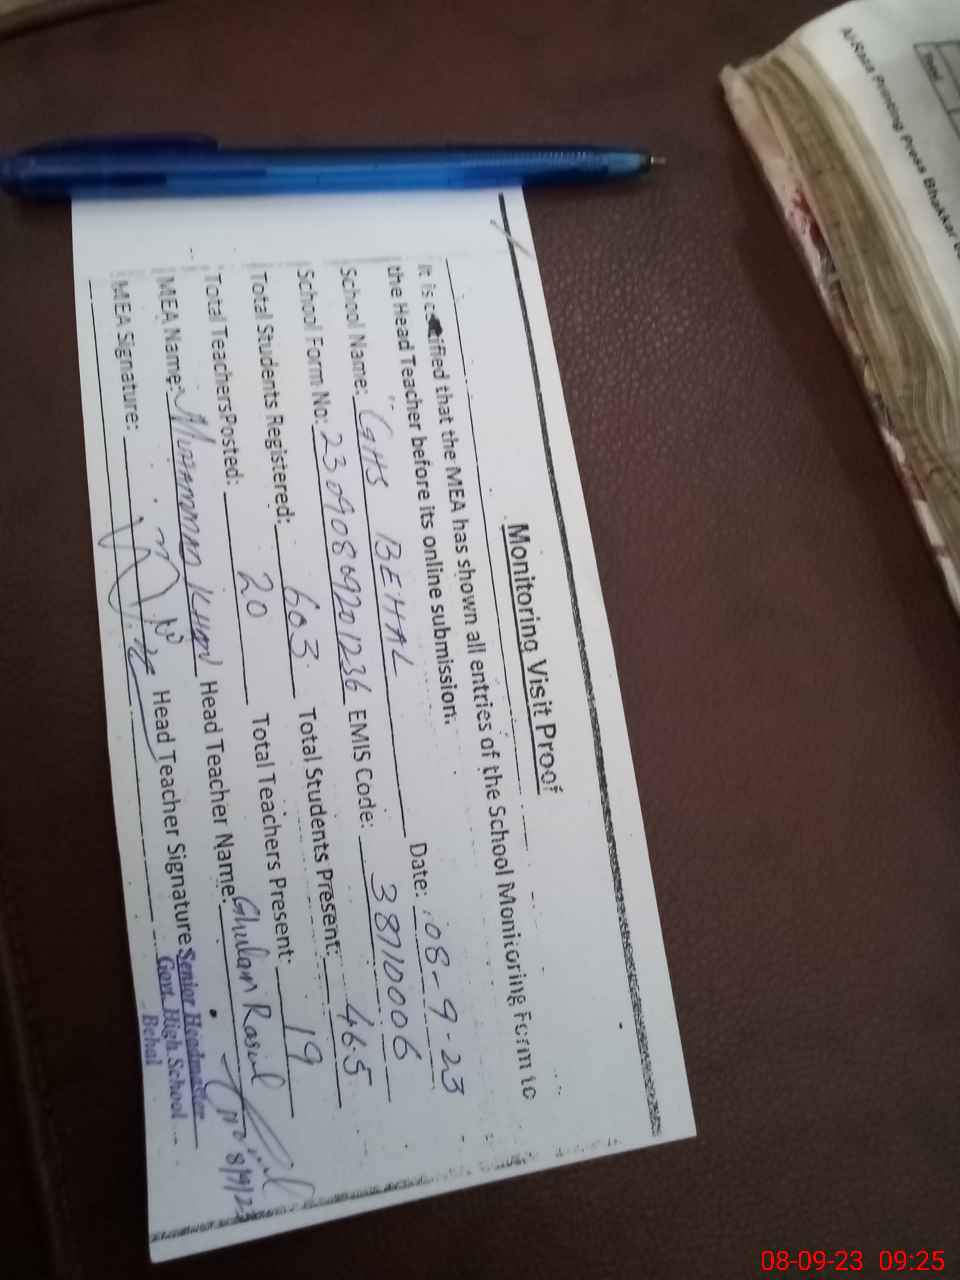 Monitoring Visit Proof
It is certified that the MEA has shown all entries of the School Monitoring Form to
the Head Teacher before its online submission.
School Name: GHS BEHAL Date: 08-9-23
School Form No: 23090869201236 EMIS Code: 38710006
Total Students Registered: 603 Total Students Present: 465
Total TeachersPosted: 20 Total Teachers Present: 19
MEA Name: Muhammad Khan Head Teacher Name: Ghulam Rasul
MEA Signature: Head Teacher Signature
8/9/23
Senior Headmaster
Govt. High School
Behal
Al-Raza Printing Press Bhakkar
Total
08-09-23 09:25